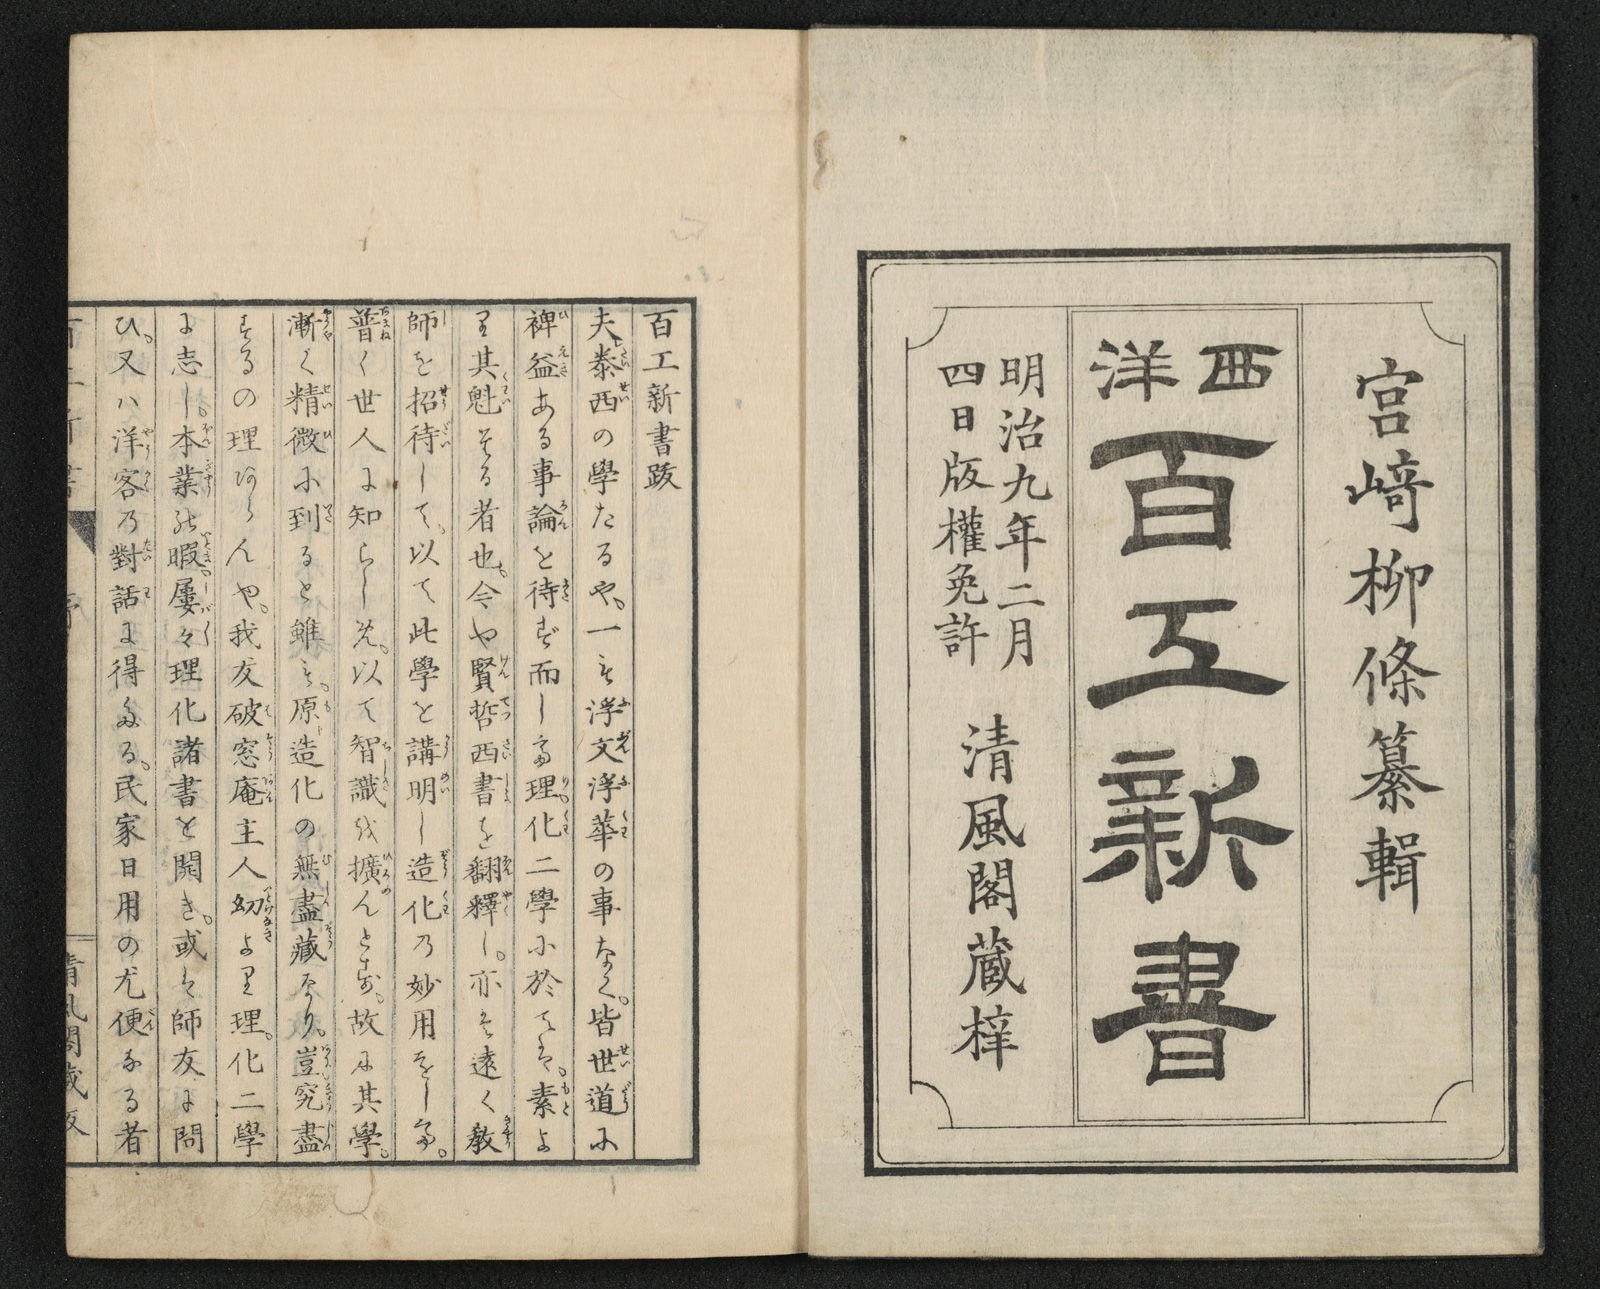 宮﨑柳條纂輯
西洋
百工新書
明治九年二月
四日版權免許
清風閣蔵梓
百工新書跋
夫泰西の學たるや。一も浮文浮華の事なく。皆世道に
裨益ある事論を待ず而して理化二學に於ては。素よ
り其魁たる者也。今や賢哲西書を翻釋し。亦は遠く教
師を招待して。以て此學を講明し造化乃妙用をして。
普く世人に知らしめ。以て智識を擴んとす。故に其學。
漸く精微に到ると雖も。原造化の無盡藏なり。豈究盡
するの理あらんや。我友破窓庵主人幼より理化二學
に志し。本業の暇屢々理化諸書を開き。或は師友に問
ひ。又ハ洋客乃對話に得たる。民家日用の尤便なる者
清風閣蔵版